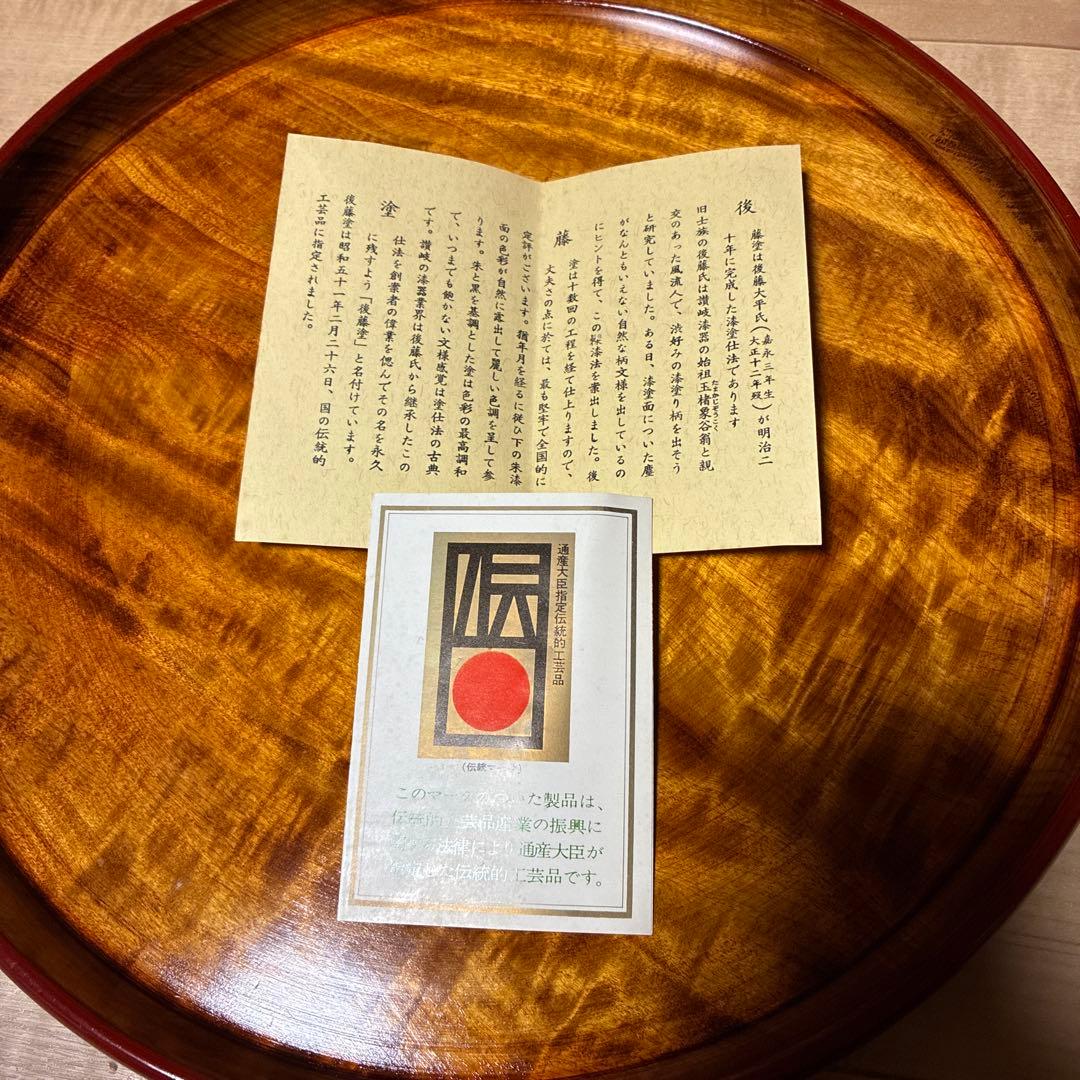 後
藤塗は後藤大平氏(嘉永三年生 大正十二年歿)が明治二
十年に完成した漆塗仕法であります
旧士族の後藤氏は讃岐漆器の始祖玉楮象谷翁と親
たまかじぞうこく
交のあった風流人で、渋好みの漆塗り柄を出そう
と研究していました。ある日、漆塗面についた塵
がなんともいえない自然な柄文様を出しているの
にヒントを得て、この漆法を案出しました。後
藤
塗は十数回の工程を経て仕上りますので、
丈夫さの点に於ては、最も堅牢で全国的に
定評がございます。猶年月を経るに従ひ下の朱漆
面の色彩が自然に露出して麗しい色調を呈して参
ります。朱と黒を基調とした塗は色彩の最高調和
で、いつまでも飽かない文様感覚は塗仕法の古典
です。讃岐の漆器業界は後藤氏から継承したこの
塗
仕法を創業者の偉業を偲んでその名を永久
に残すよう「後藤塗」と名付けています。
後藤塗は昭和五十一年二月二十六日、国の伝統的
工芸品に指定されました。
通産大臣指定伝統的工芸品
伝
(伝統マーク)
このマークのついた製品は、
伝統的工芸品産業の振興に
法律により通産大臣が
指定した伝統的工芸品です。